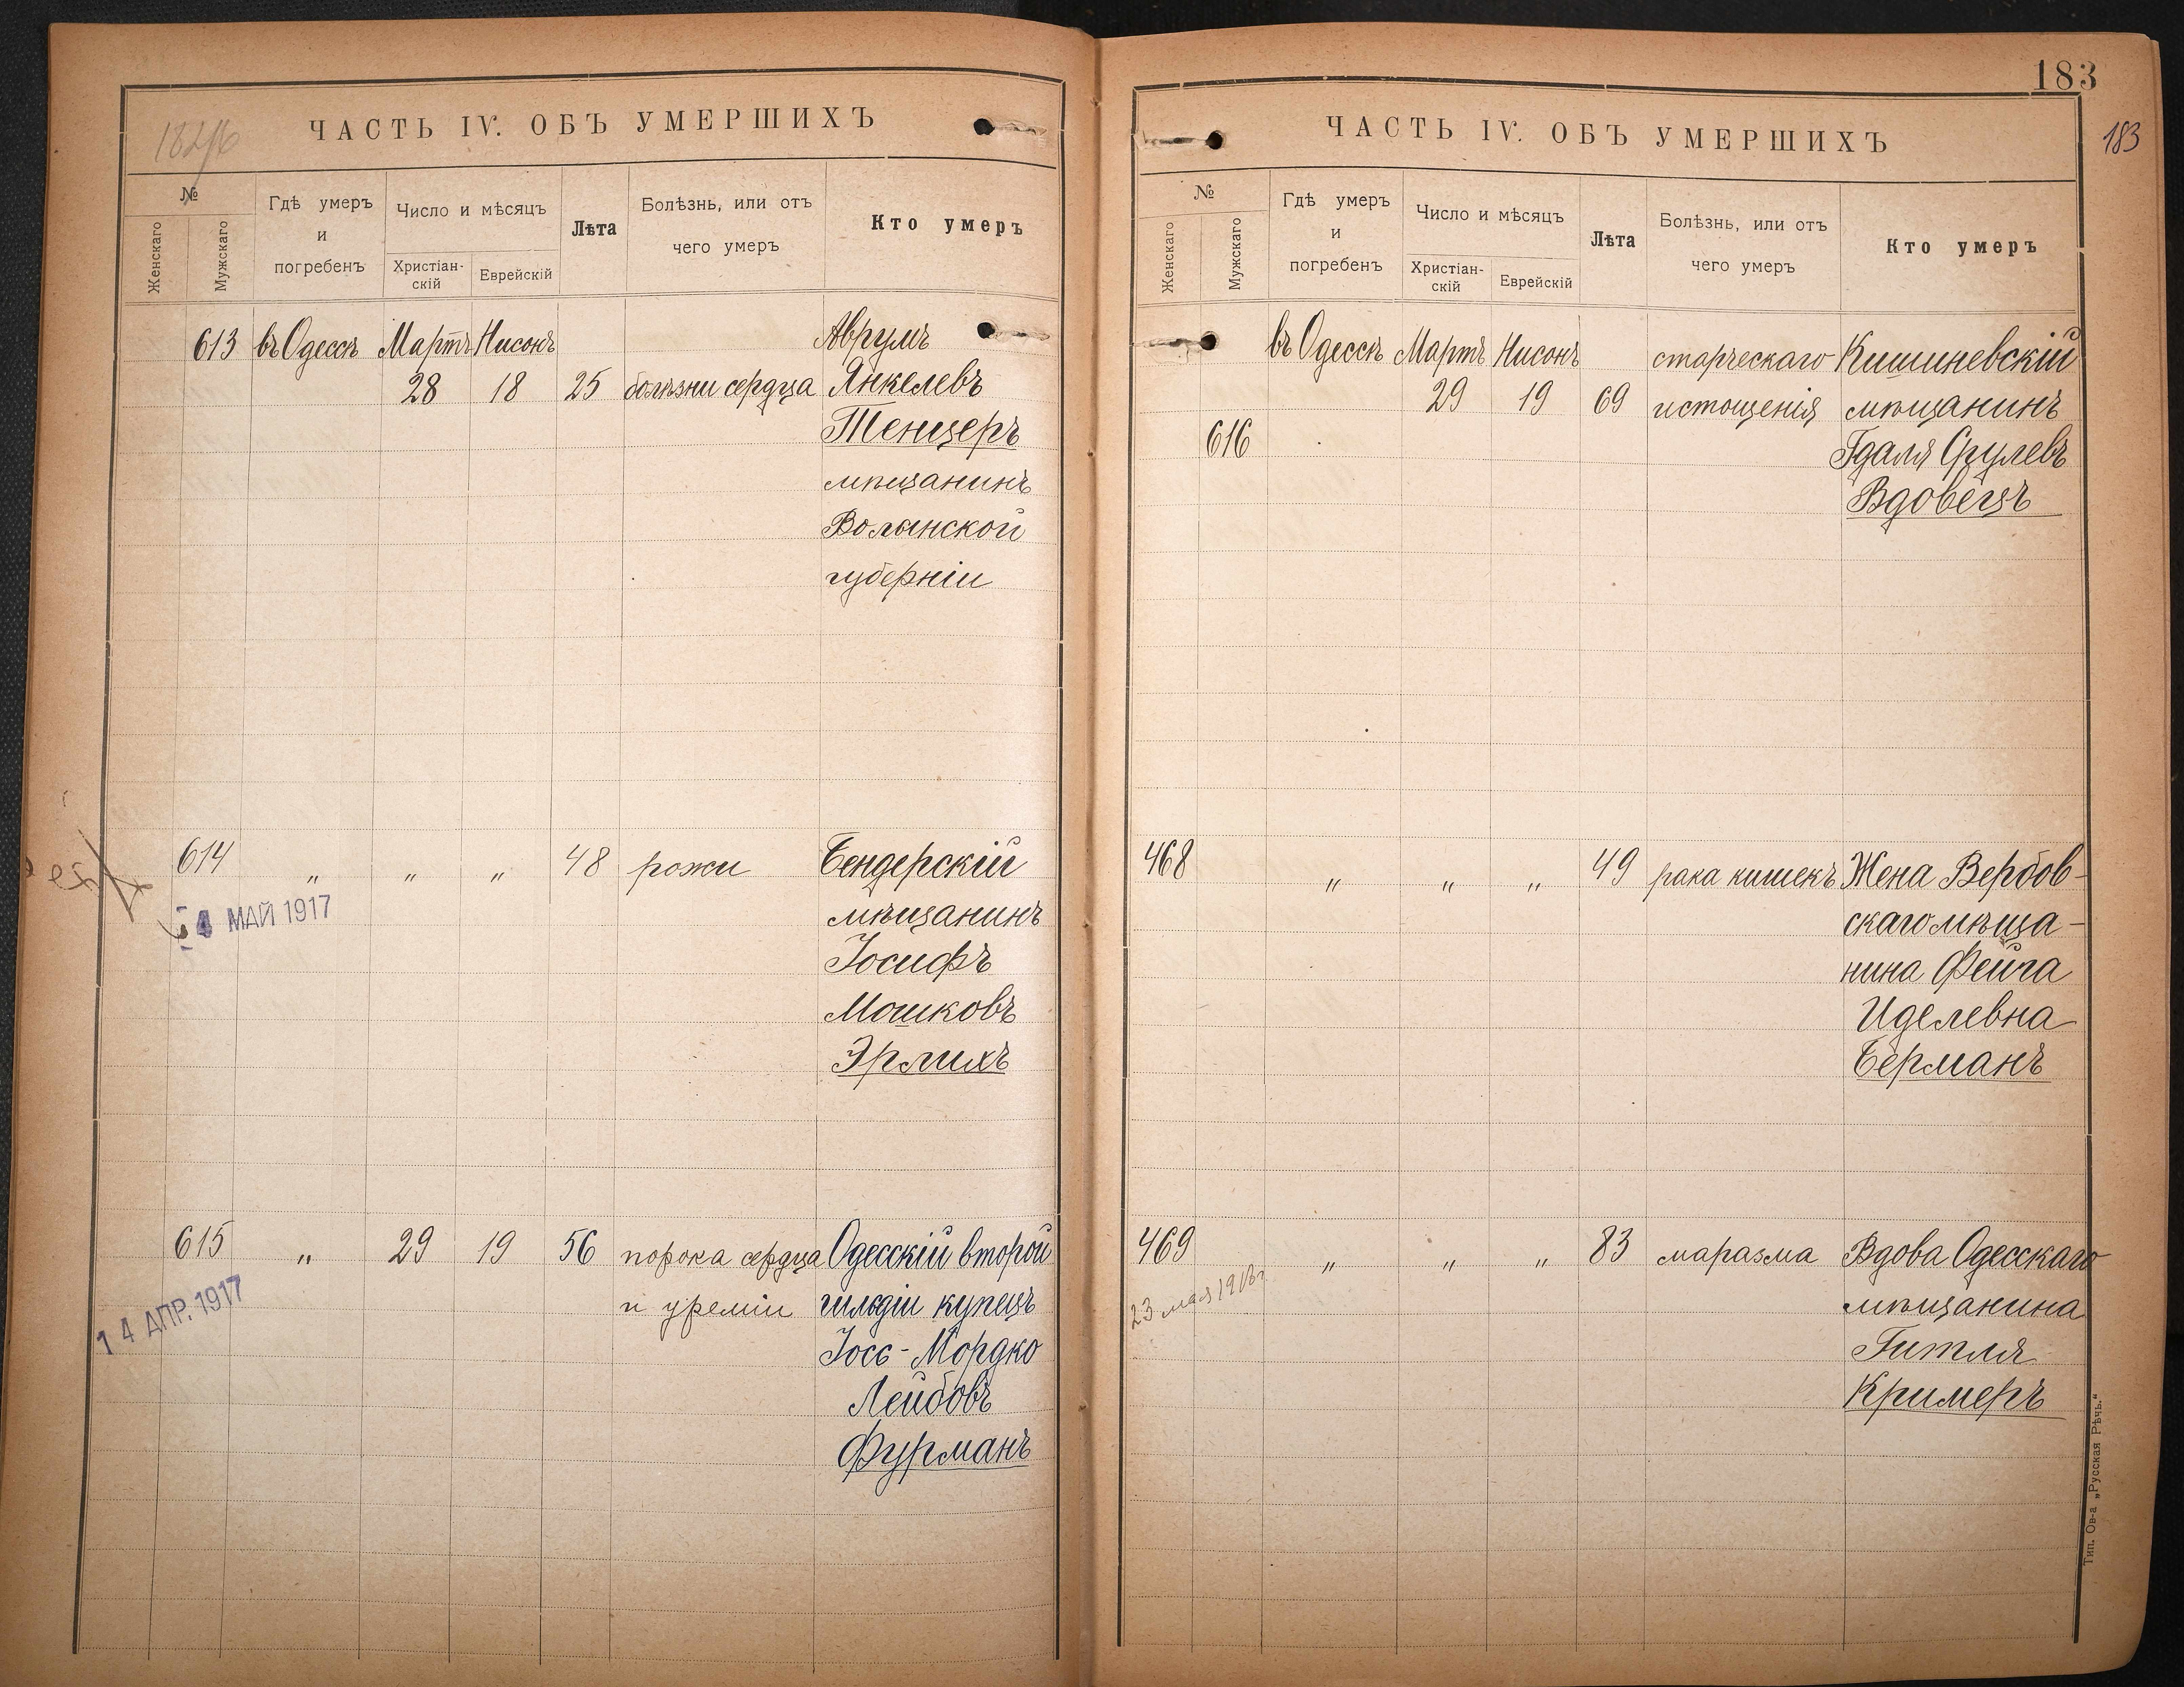 ЧАСТЬ IV. ОБЪ УМЕРШИХЪ
№
Женскаго
Мужскаго
Гдѣ умеръ
и
погребенъ
Число и мѣсяцъ
Христіан-
скій
Еврейскій
Лѣта
Болѣзнь, или отъ
чего умеръ
Кто умеръ
613 въ Одессѣ Мартъ Нисонъ Аврумъ
28 18 25 болѣзни сердца Янкелевъ
Тенцеръ
мѣщанинъ
Волынской
губерніи
614 „ „ „ 48 рожи Бендерскій
4 МАЙ 1917 мѣщанинъ
Іосифъ
Мошковъ
Эрлихъ
615 „ 29 19 56 порока сердца Одесскій второй
14 АПР. 1917 и уреміи гильдіи купецъ
Іосс-Мордко
Лейбовъ
Фурманъ
183
183
ЧАСТЬ IV. ОБЪ УМЕРШИХЪ
№
Женскаго
Мужскаго
Гдѣ умеръ
и
погребенъ
Число и мѣсяцъ
Христіан-
скій
Еврейскій
Лѣта
Болѣзнь, или отъ
чего умеръ
Кто умеръ
въ Одессѣ Мартъ Нисонъ старческаго Кишиневскій
29 19 69 истощенія мѣщанинъ
616 Гдаля Срулевъ
Вдовецъ
468 „ „ „ 49 рака кишекъ Жена Вербов-
скаго мѣща-
нина Фейга
Иделевна
Берманъ
469 „ „ „ 83 маразма Вдова Одесскаго
23 мая 1918г мѣщанина
Гитля
Кримеръ
Тип. Ов-а „Русская Рѣчь.“